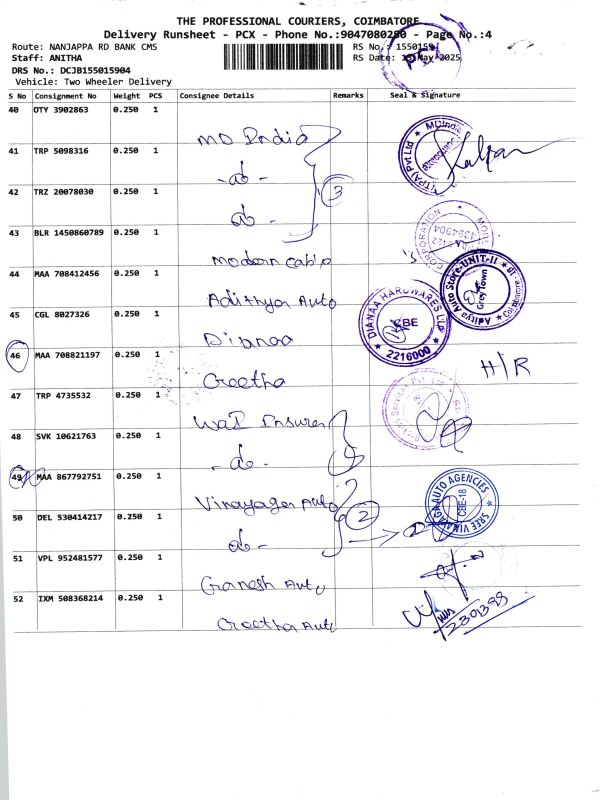 THE PROFESSIONAL COURIERS, COIMBATORE
Delivery Runsheet - PCX - Phone No.:9047080250 - Page No.:4
Route: NANJAPPA RD BANK CMS
RS No.: 1550159
Staff: ANITHA
RS Date: May-2025
DRS No.: DCJB155015904
Vehicle: Two Wheeler Delivery
S No Consignment No Weight PCS Consignee Details Remarks Seal & Signature
40 OTY 3902863 0.250 1 MD India
41 TRP 5098316 0.250 1 -do-
3
42 TRZ 20078030 0.250 1 do-
43 BLR 1450860789 0.250 1 Modern
44 MAA 708412456 0.250 1 Adithya Auto
45 CGL 8027326 0.250 1 Dianaa
DIANAA HARDWARES LLP
CBE
2216000
Aditya Auto Store-UNIT-II
46 MAA 708821197 0.250 1 Geetha
H/R
47 TRP 4735532 0.250 1 Insurer
48 SVK 10621763 0.250 1 -do-
49 MAA 867792751 0.250 1 Vinayaga Auto
2
SREE VINAYAGA AUTO AGENCIES
CBE-18
50 DEL 530414217 0.250 1 do-
51 VPL 952481577 0.250 1 Ganesh Auto
52 IXM 508368214 0.250 1 Geetha Auto